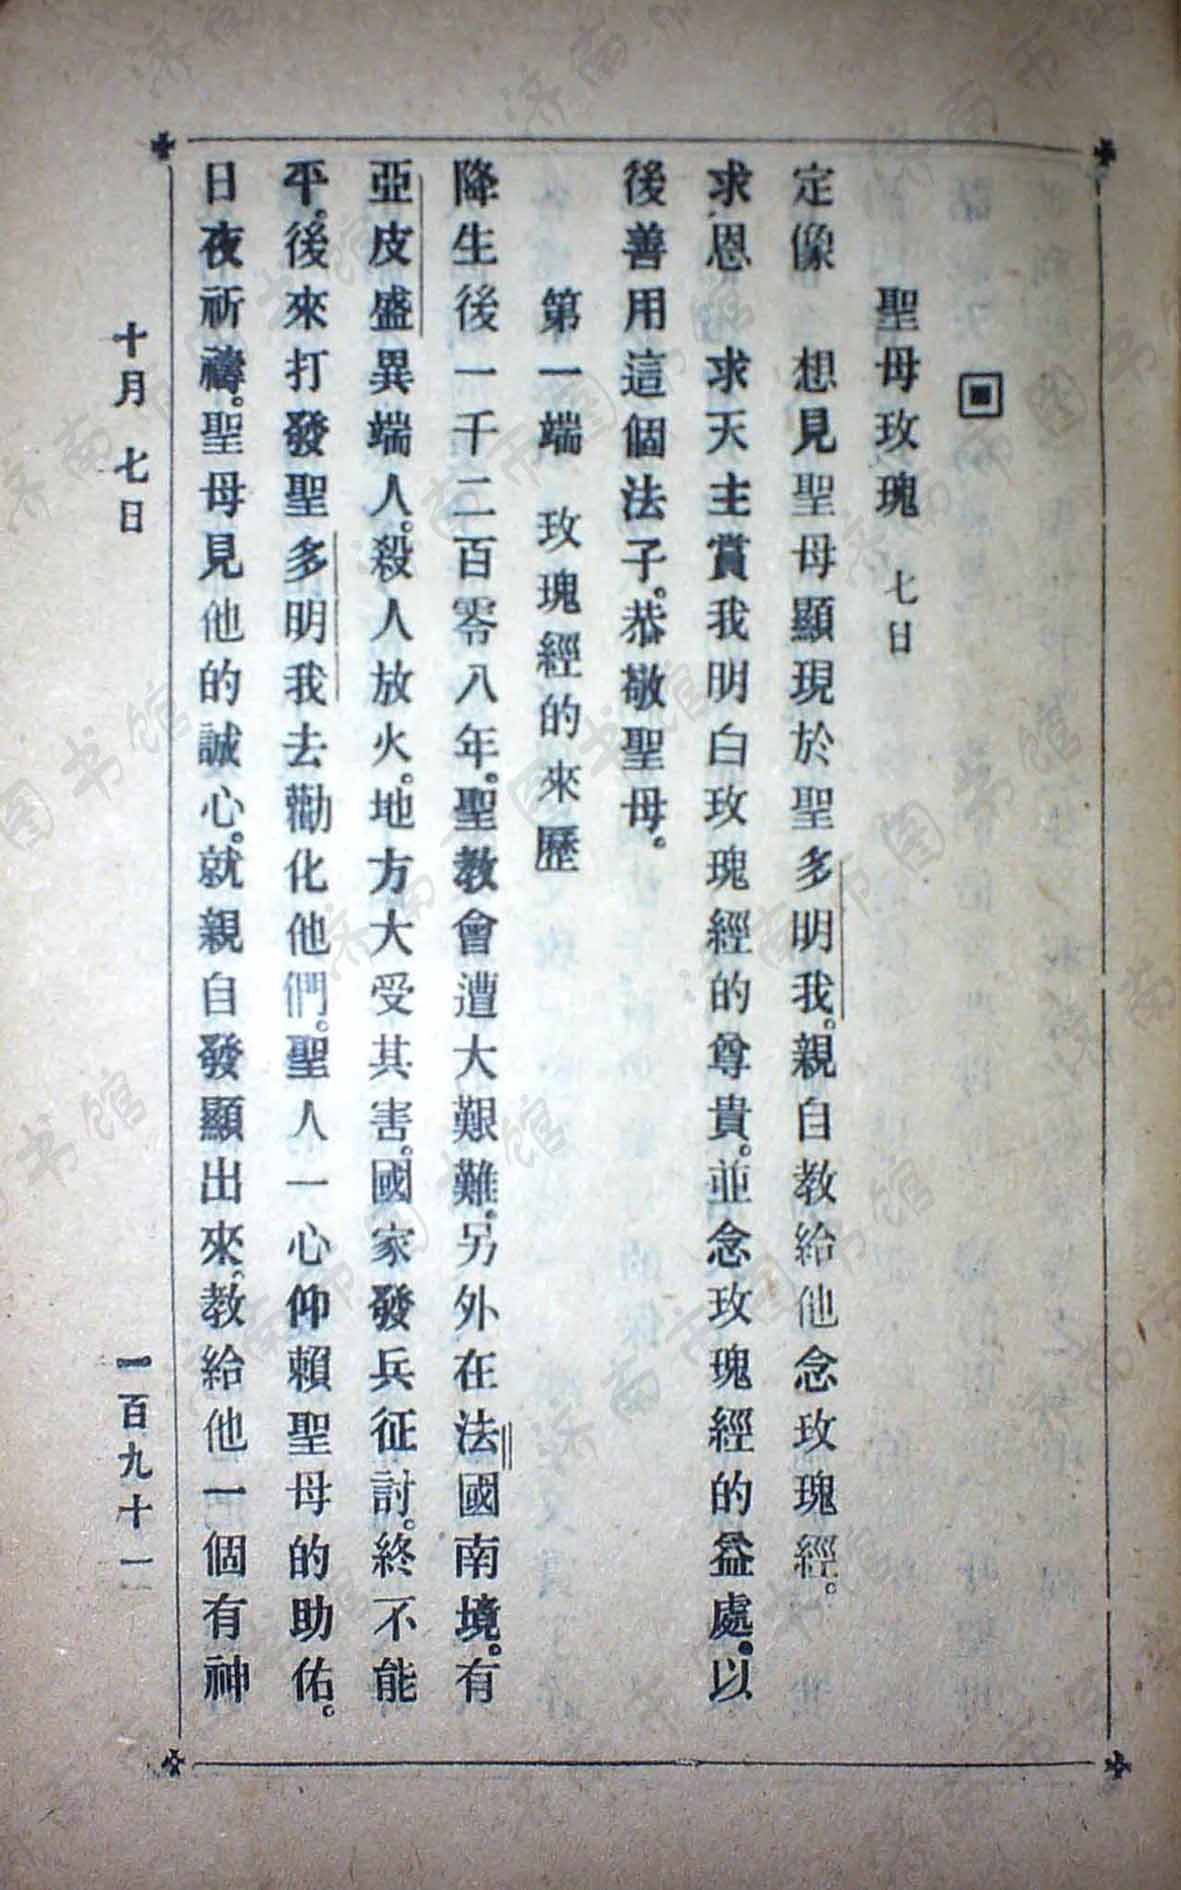 聖母玫瑰 七日
定像 想見聖母顯現於聖多明我。親自教給他念玫瑰經。
求恩 求天主賞我明白玫瑰經的尊貴。並念玫瑰經的益處。以
後善用這個法子。恭敬聖母。
第一端 玫瑰經的來歷
降生後一千二百零八年。聖教會遭大艱難。另外在法國南境。有
亞皮盛異端人。殺人放火。地方大受其害。國家發兵征討。終不能
平。後來打發聖多明我去勸化他們。聖人一心仰賴聖母的助佑。
日夜祈禱。聖母見他的誠心。就親自發顯出來。教給他一個有神
十月 七日
一百九十一
济南市图书馆